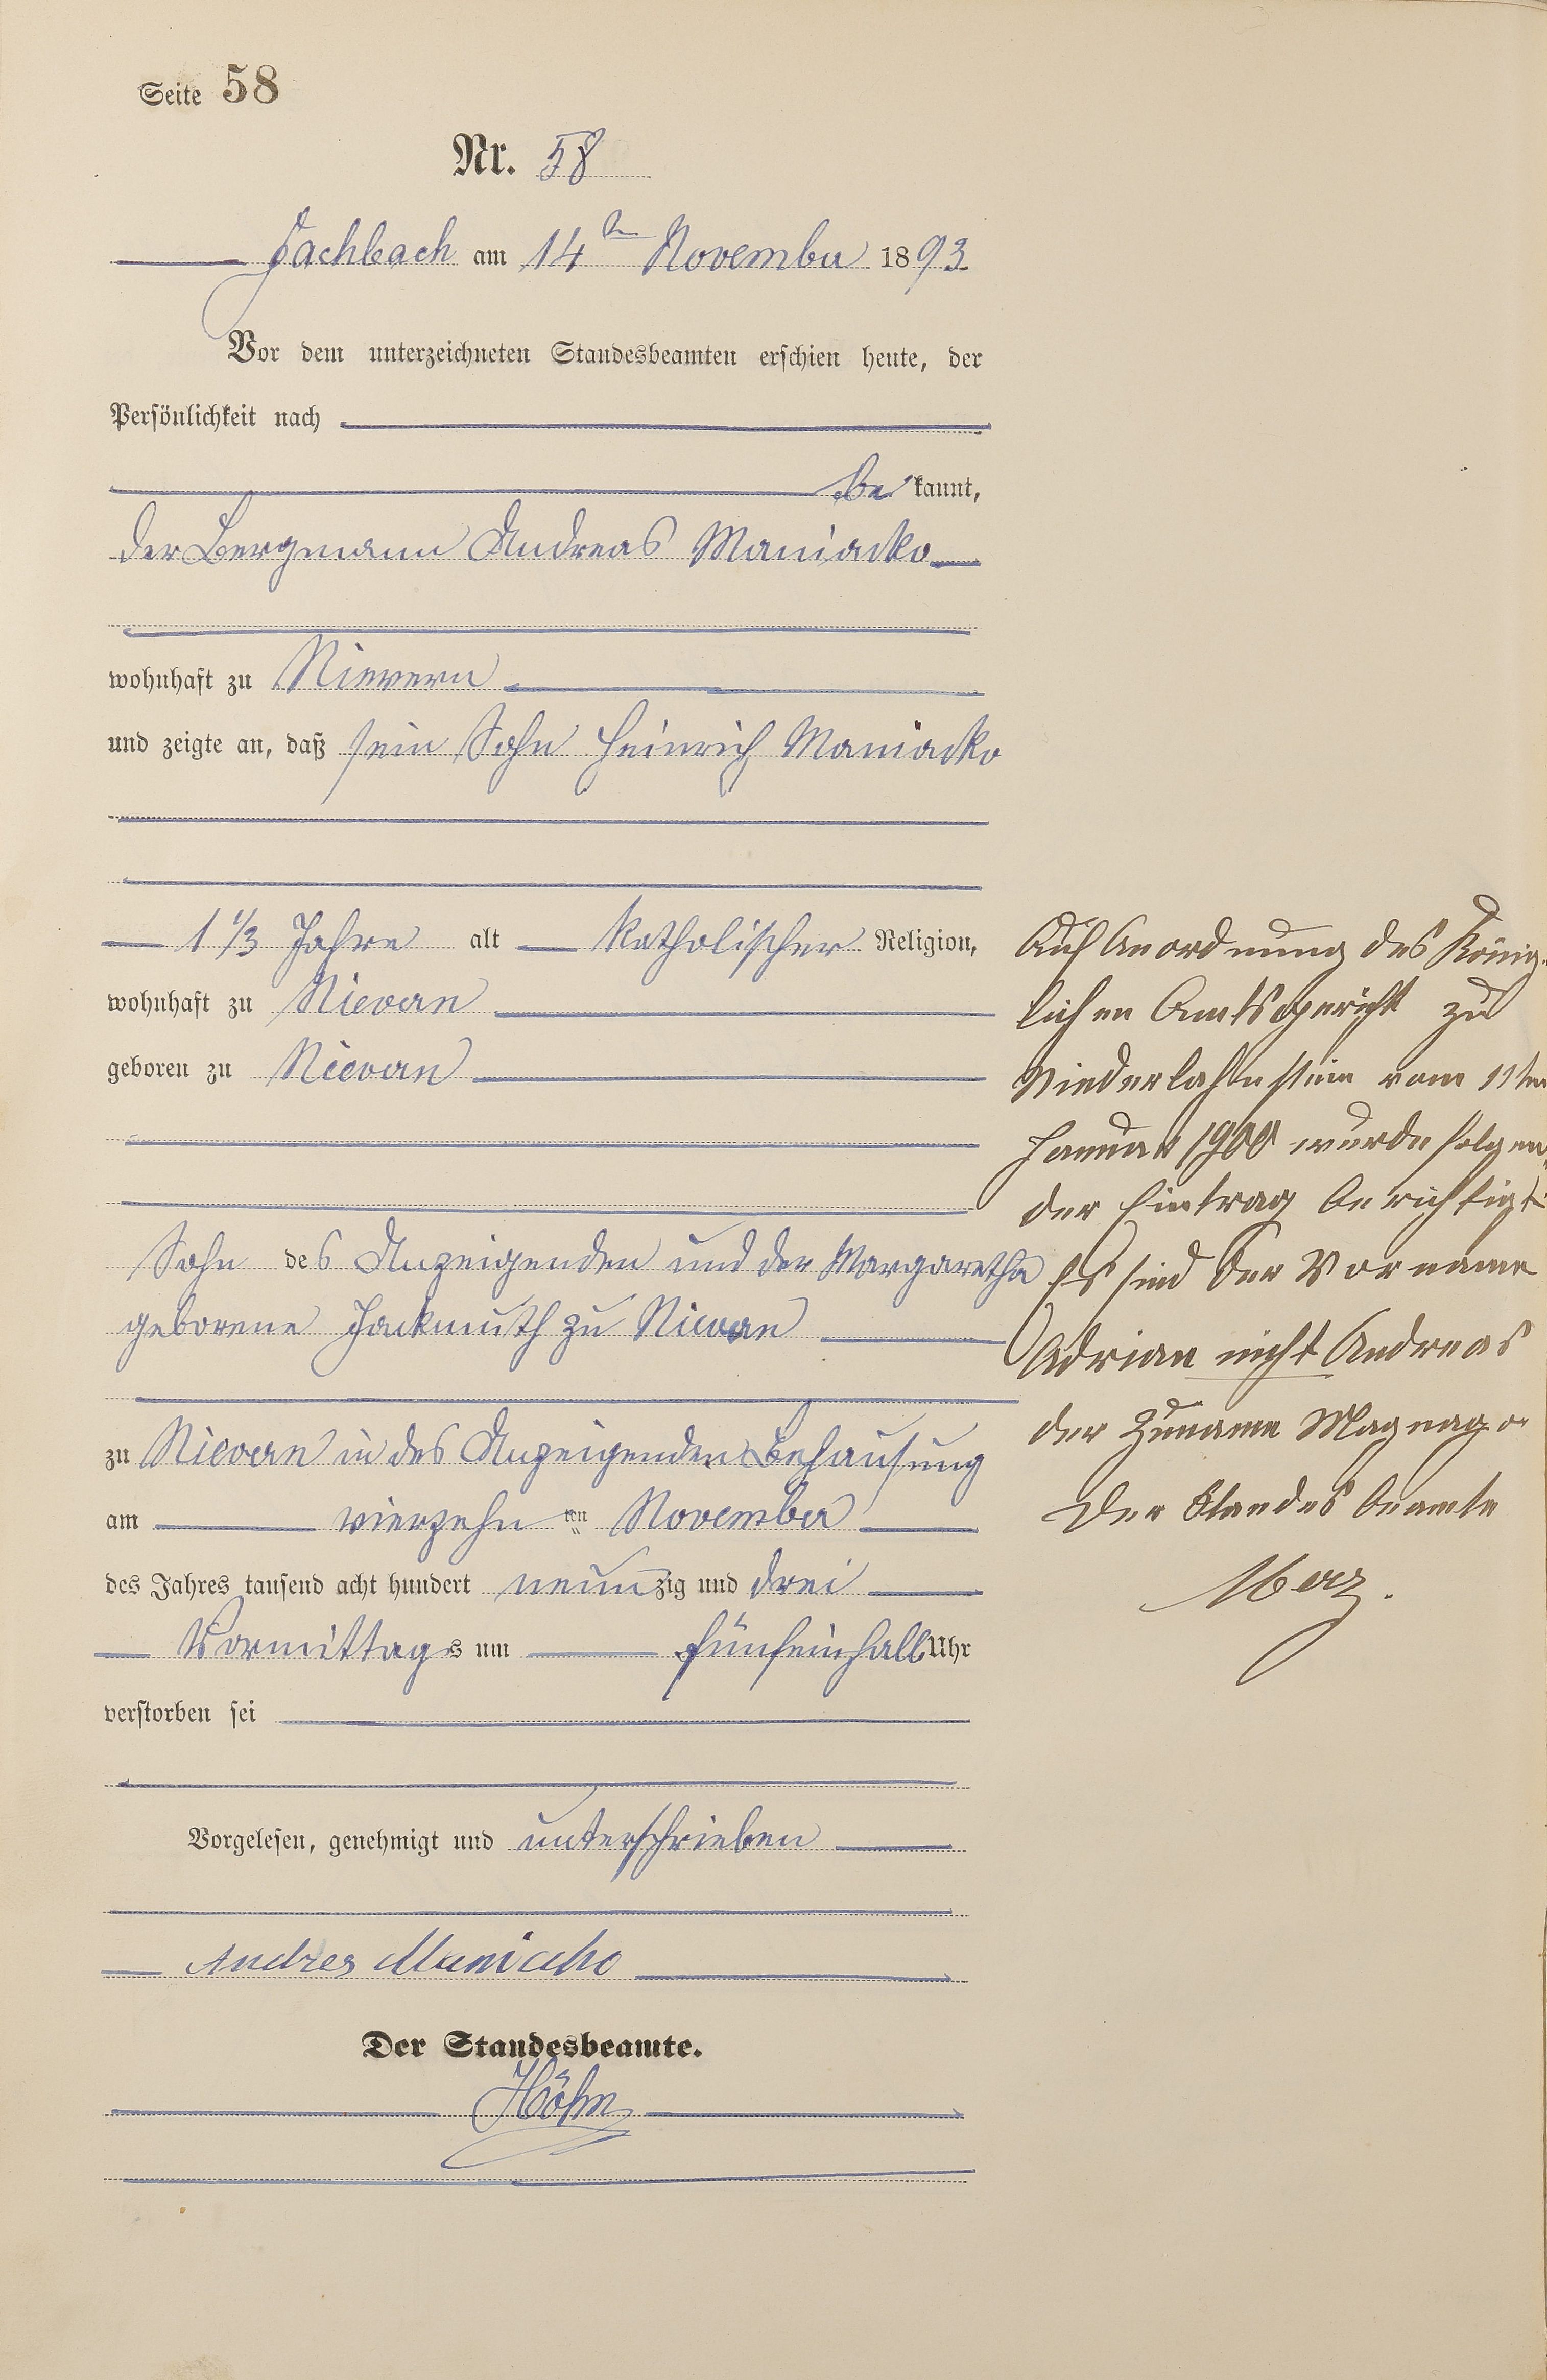 Seite 58
Nr. 58
Fachbach am 14ten November 1893
Vor dem unterzeichneten Standesbeamten erschien heute, der
Persönlichkeit nach
be kannt,
der Bergmann Andreas Maniacko
wohnhaft zu Nievern
und zeigte an, daß sein Sohn Heinrich Maniacko
1 1/3 Jahre alt katholischer Religion,
wohnhaft zu Nievern
geboren zu Nievern
Sohn des Anzeigenden und der Margaretha
geborene Jackmuth zu Nievern
zu Nievern in des Anzeigenden Behausung
am vierzehn ten November
des Jahres tausend acht hundert neunzig und drei
Vormittags um fünfeinhalb Uhr
verstorben sei
Vorgelesen, genehmigt und unterschrieben
Andres Maniacho
Der Standesbeamte.
Höhn
Auf Anordnung des König-
lichen Amtsgericht zu
Niederlahnstein vom 11ten
Januar 1900 wurde folgen-
der Eintrag berichtigt
Es sind der Vorname
Adrian nicht Andreas
der Zuname Magnago
Der Standesbeamte